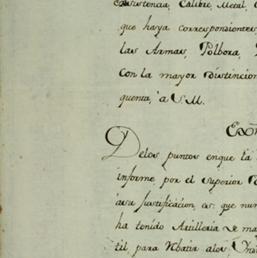 consistencia, Calibre, Metal,
que haya correspondientes,
las Armas, Polbora,
Con la mayor distincion
quenta, a S.M.
Delos puntos enque la
informe por el Superior
asu justificacion, es: que nun
ha tenido Artilleria de ma
til para Vbatir alos Yndi